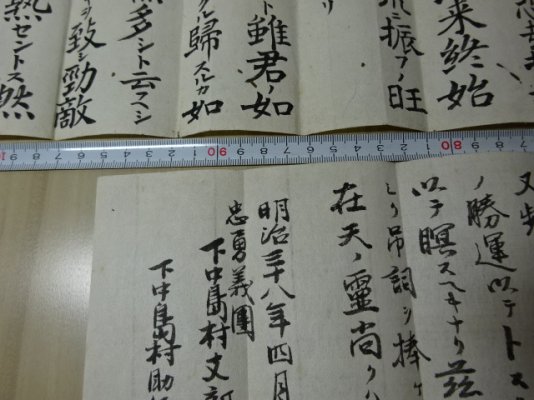 来終始
ニ振フノ旺
リ
ト雖君ノ如
歸スルカ如
多シト云ヘシ
ヲ致シ勁敵
熱セントス然
80
90
又
ノ勝運以テト
以テ瞑スヘキナリ茲
吊詞ヲ捧ケ
在天ノ靈尚クハ
明治三十八年四月
忠勇義團
下中島村支部
下中島村助